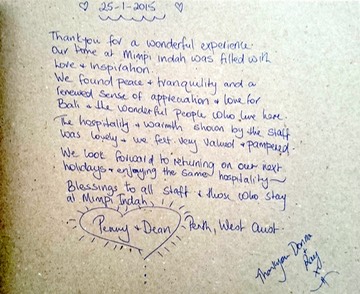 ♡ 25-1-2015 ♡
Thankyou for a wonderful experience.
Our time at Mimpi Indah was filled with
love + inspiration.
We found peace + tranquility and a
renewed sense of appreciation + love for
Bali + the wonderful people who live here.
The hospitality + warmth shown by the staff
was lovely + we felt very valued + pampered.
We look forward to returning on our next
holidays + enjoying the same hospitality
Blessings to all staff + those who stay
at Mimpi Indah
Penny + Dean Perth, West Aust.
Thankyou Donna
+ Ray
x